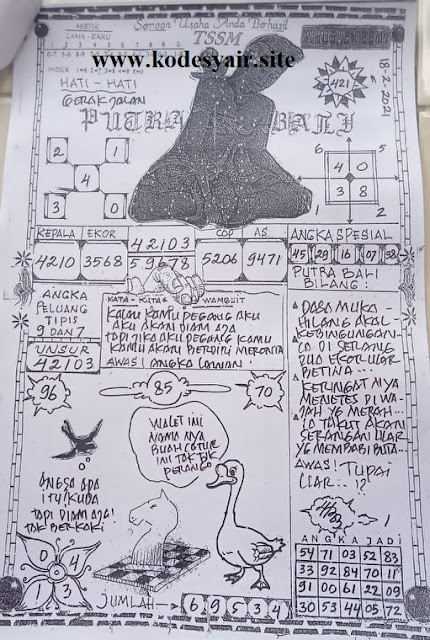 Semoga Usaha Anda Berhasil
MISTIK
LAMA - BARU
TSSM
www.kodesyair.site
INDEX 1=6 2=7 3=8 4=9 5=0
HATI - HATI
GERAK JALAN
PUTRA BALI
421
18-2-2021
2 1
4
3 0
6 5
4 0
3 8
1 2
KEPALA EKOR 42103 COP AS
4210 3568 59678 5206 9471
ANGKA SPESIAL
45 29 16 07 38
PUTRA BALI
BILANG :
ANGKA
PELUANG
TIPIS
9 DAN 7
UNSUR
42103
KATA - KATA WANGSIT
KALAU KAMU PEGANG AKU
AKU AKAN DIAM AJA
TAPI JIKA AKU PEGANG KAMU
KAMU AKAN BERDIRI MERONTA
AWAS! ANGKA LAWAN!
DASA MUKA -
HILANG AKAL
KEBINGUNGAN
DI SERANG
DUA EKOR ULAR
BETINA...
KERINGAT NYA
MENETES DI WA-
JAH YG MERAH...
IA TAKUT AKAN
SERANGAN ULAR
YG MEMBABI BUTA..
AWAS! TUPAI
LIAR... !?
96
85
70
WALET INI
NAMA NYA
BUAH CATUR
INI TAKTIK
PERANG
ANGSA ADA
ITU! KUDA
TAPI DIAM AJA!
TAK BERKAKI
0 4
1 3
JUMLAH → 6 9 5 3 4
ANGKA JADI
54 71 03 52 83
33 92 84 70 11
91 00 61 22 09
30 53 44 05 72